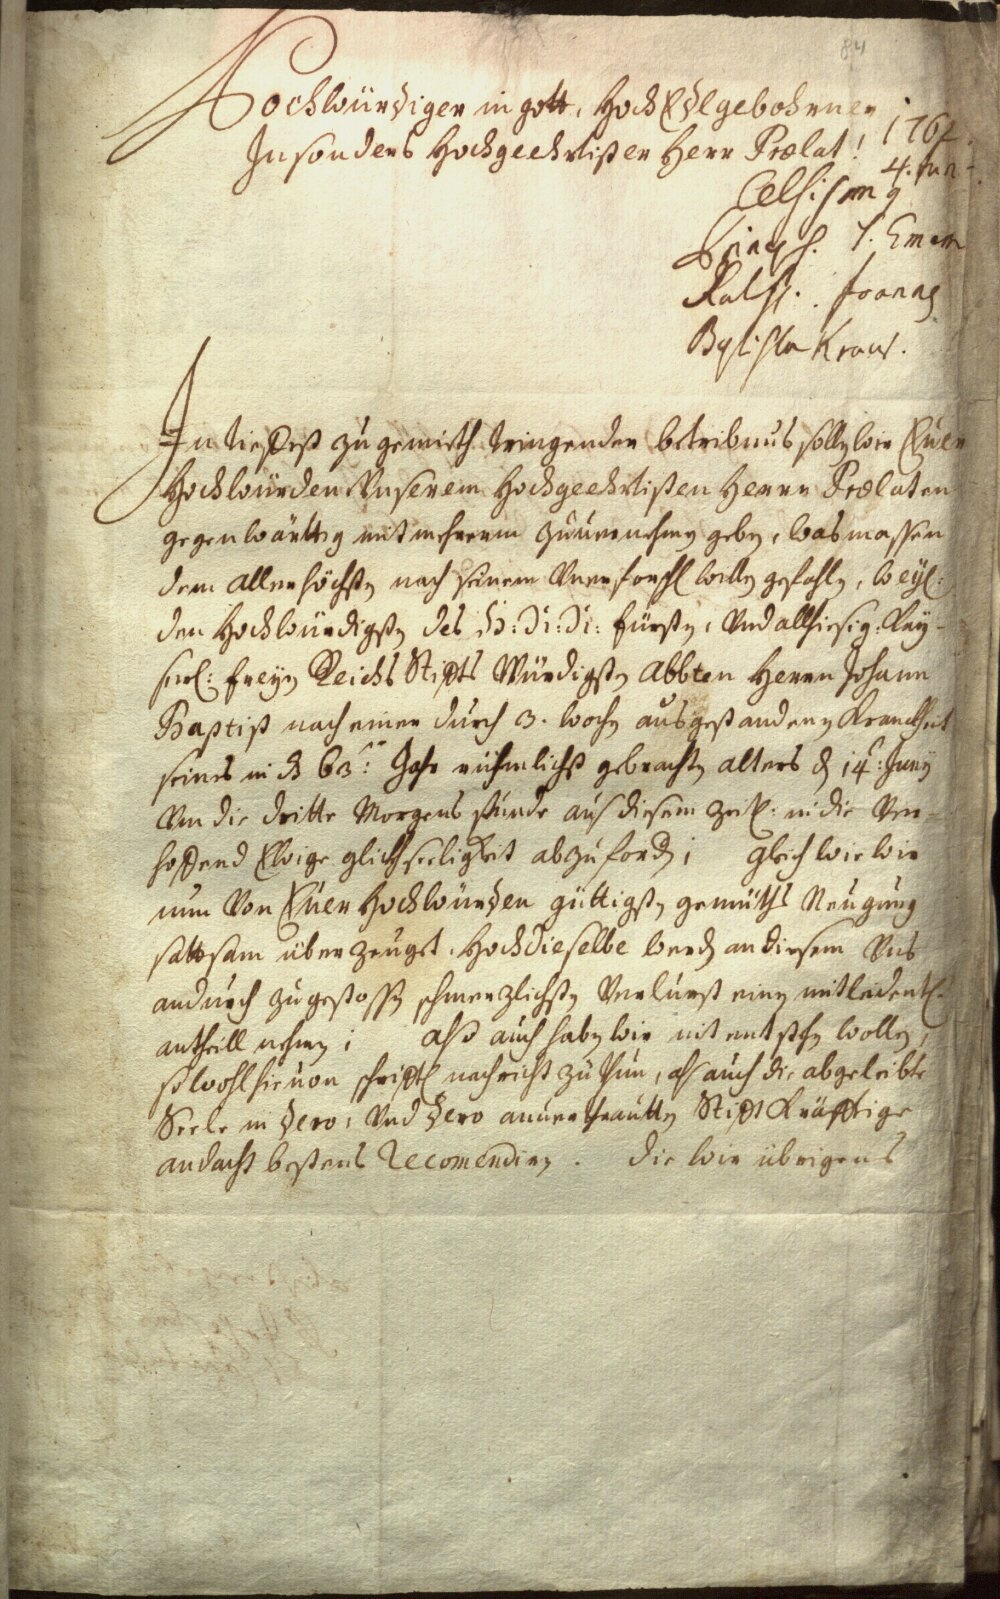 84
Hochwürdiger in gott, HochEdlgebohrner
Insonders Hochgeehrtister Herr Prælat!
1762
4. Jun
Celsissimus
Princeps S. Emer
Ratisp. Joannes
Baptista Kraus.
In tieffest zu gemieth tringender betribnus sollen wir Euer
Hochwürden Unserem Hochgeehrtisten Herrn Prælaten
gegenwärttig mit mehrerem zuuernehmen geben, was massen
dem Allerhöchsten nach seinem Unerforschl willen gefahlen, weyl:
den Hochwürdigsten des H: R: R: Fürsten, Und allhiesig: Kay-
serl: Freyen Reichs Stiffts Würdigsten Abbten Herrn Johann
Baptist nach einer durch 3. wochen ausgestandenen Kranckheit
seines in d 63: Jahr rühmlichst gebrachten alters d 14t: Juny
Um die dritte Morgens stunde aus diesem zeitl: in die Ver-
hoffend Ewige glickhseeligkeit abzufordern; gleich wie wir
nun Von Euer Hochwürden güttigsten gemüths Neugung
sattsam überzeuget, Hochdieselbe werden an diesem Uns
andurch zugestossenen schmerzlichsten Verlurst einen mitleidentl:
antheill nehmen; also auch haben wir nit entstehen wollen,
sowohl hieuon schrifftl nachricht zu thun, als auch die abgeleibte
Seele in dero, Und dero anuerthrautten Stifft Kräfftige
andacht bestens Recomendiren. die wir übrigens